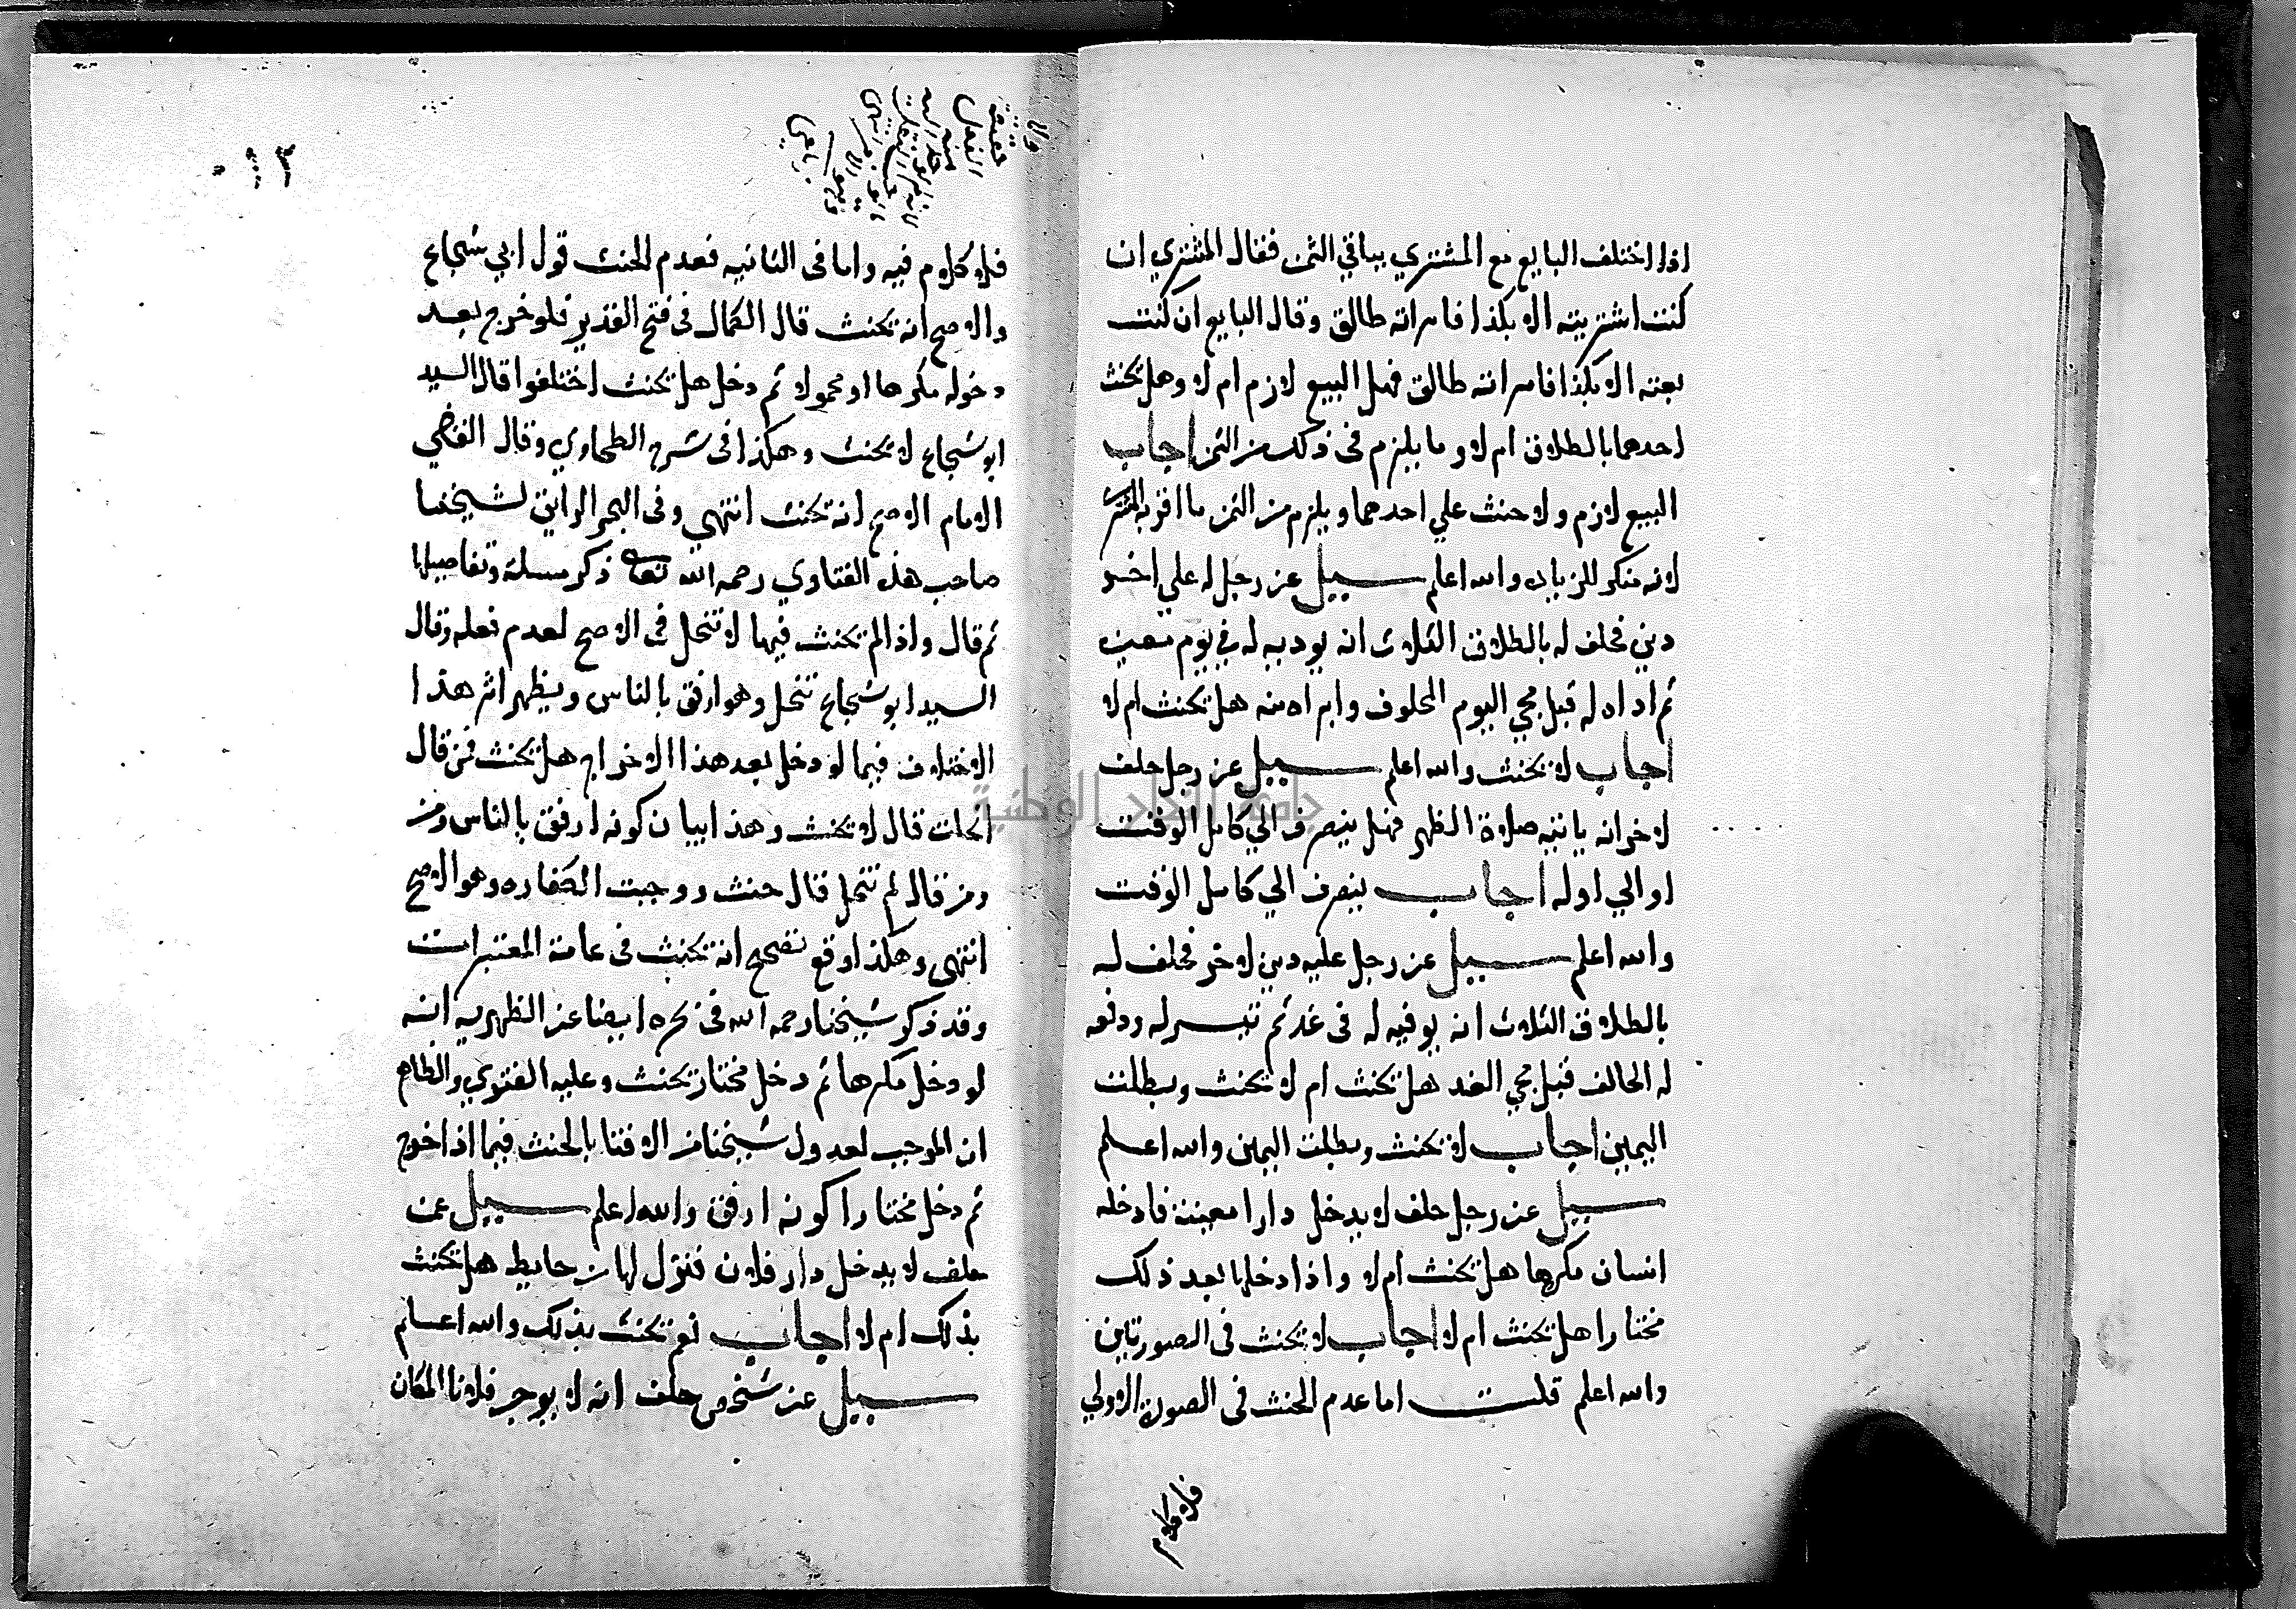 اذا اختلف البايع مع المشتري بباقي الثمن فقال المشتري ان
كنت اشتريته الا بكذا فامراته طالق وقال البايع ان كنت
بعته الا بكذا فامراته طالق فهل البيع لازم ام لا وهل يحنث
احدهما بالطلاق ام لا وما يلزم في ذلك من الثمن اجاب
البيع لازم ولا حنث علي احدهما ويلزم من الثمن ما اقر به المشتري
لانه منكر للزيادة والله اعلم سيل عن رجل له علي اخر
دين فحلف له بالطلاق الثلاث انه يوديه له في يوم معين
ثم اداه له قبل مجي اليوم المحلوف وابراه منه هل يحنث ام لا
اجاب لا يحنث والله اعلم سيل عن رجل حلف
لاخر انه ياتيه صلاة الظهر فهل ينصرف الي كامل الوقت
او الي اوله اجاب ينصرف الي كامل الوقت
والله اعلم سيل عن رجل عليه دين لاخر فحلف له
بالطلاق الثلاث انه يوفيه له في غد ثم تيسر له ودفعه
له الحالف قبل مجي الغد هل يحنث ام لا يحنث وبطلت
اليمين اجاب لا يحنث وبطلت اليمين والله اعلم
سيل عن رجل حلف لا يدخل دارا معينة فادخله
انسان مكرها هل يحنث ام لا واذا دخلها بعد ذلك
مختارا هل يحنث ام لا اجاب لا يحنث في الصورتين
والله اعلم قلت اما عدم الحنث في الصورة الاولي
فلا كلام
١٣
فلا كلام فيه واما في الثانيه فعدم الحنث قول ابي شجاع
والاصح انه يحنث قال الكمال في فتح القدير فلو خرج بعد
دخوله مكرها او محمولا ثم دخل هل يحنث اختلفوا قال السيد
ابو شجاع لا يحنث وهكذا في شرح الطحاوي وقال القاضي
الامام الاصح انه يحنث انتهي وفي البحر الرايق لشيخنا
صاحب هذه الفتاوي رحمه الله تعالى ذكر مسلة وتفاصيلها
ثم قال واذا لم يحنث فيها لا تنحل في الاصح لعدم فعله وقال
السيد ابو شجاع تنحل وهو ارفق بالناس ويظهر اثر هذا
الاختلاف فيما لو دخل بعد هذا الاخراج هل يحنث فمن قال
انحلت قال لا يحنث وهذا بيان كونه ارفق بالناس ومن
ومن قال لم تنحل قال حنث ووجبت الكفاره وهو الاصح
انتهي وهكذا وقع تصحيح انه يحنث في عامة المعتبرات
وقد ذكر شيخنا رحمه الله في بحره ايضا عن الظهريه انه
لو دخل مكرها ثم دخل مختار يحنث وعليه الفتوي والظاهر
ان الموجب لعدول شيخنا من الافتا بالحنث فيما اذا خرج
ثم دخل مختارا كونه ارفق والله اعلم سيل عمن
حلف لا يدخل دار فلان فنزل لها من حايط هل يحنث
بذلك ام لا اجاب نعم يحنث بذلك والله اعلم
سيل عن شخص حلف انه لا يوجر فلانا المكان
جامعة النجاح الوطنية